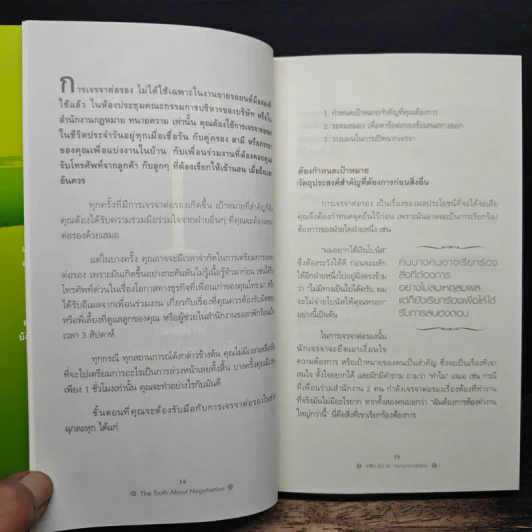 การเจรจาต่อรอง ไม่ได้ใช้เฉพาะในงานขายรถยนต์มือสอง
ใช้แล้ว ในห้องประชุมคณะกรรมการบริหารของบริษัท หรือใน
สำนักงานกฎหมาย ทนายความ เท่านั้น คุณต้องใช้การเจรจาต่อรอง
ในชีวิตประจำวันอยู่ทุกเมื่อเชื่อวัน กับคู่ครอง สามี หรือภรรยา
ของคุณเพื่อแบ่งงานในบ้าน กับเพื่อนร่วมงานที่ต้องคอย
รับโทรศัพท์จากลูกค้า กับลูกๆ ที่ต้องเรียกให้เข้านอน เมื่อ
อันควร
ทุกครั้งที่มีการเจรจาต่อรองเกิดขึ้น เป้าหมายที่สำคัญก็คือ
คุณต้องได้รับความร่วมมือร่วมใจจากฝ่ายอื่นๆ ที่คุณจะต้อง
ต่อรองด้วยเสมอ
แต่ในบางครั้ง คุณอาจจะมีเวลาจำกัดในการเตรียมการ
ต่อรอง เพราะมันเกิดขึ้นอย่างกะทันหันไม่รู้เนื้อรู้ตัวมาก่อน เช่น
โทรศัพท์ด่วนในเรื่องโอกาสทางธุรกิจที่เพื่อนเก่าของคุณโทร มา หรือ
ได้รับอีเมลจากเพื่อนร่วมงาน เกี่ยวกับเรื่องที่คุณควรต้องรับผิดชอบ
หรือพี่เลี้ยงที่ดูแลลูกของคุณ หรือผู้ช่วยในสำนักงานขอลาพักร้อน
เวลา 3 สัปดาห์
ทุกกรณี ทุกสถานการณ์ดังกล่าวข้างต้น คุณไม่มีเวลาเหลือ
ที่จะไปเตรียมการอะไรเป็นการล่วงหน้าเลยทั้งสิ้น บางครั้งคุณมีเวลา
เพียง 1 ชั่วโมงเท่านั้น คุณจะทำอย่างไรกับมันดี
ขั้นตอนที่คุณจะต้องรับมือกับการเจรจาต่อรองใน
ฉุกละหุก ได้แก่
14
The Truth About Negotiation
1. กำหนดเป้าหมายสำคัญที่คุณต้องการ
2. ระดมสมอง เพื่อหาข้อต่อรองหรือเสนอทางออก
3. วางแผนในการเปิดฉากเจรจา
ต้องกำหนดเป้าหมาย
วัตถุประสงค์สำคัญที่ต้องการก่อนสิ่งอื่น
การเจรจาต่อรอง เป็นเรื่องของผลประโยชน์ที่จะได้จะเสีย
คุณจึงต้องกำหนดจุดยืนไว้ก่อน เพราะมันอาจจะเป็นการเรียกร้อง
ต้องการของฝ่ายใดฝ่ายหนึ่ง เช่น
"ผมอยากได้เงินโบนัส"
ซึ่งต้องระวังให้ดี ก่อนจะผลัก
ให้อีกฝ่ายไปอยู่ฝั่งตรงข้าม
ว่า "ไม่มีทางเป็นไปได้ครับ ผม
จะไม่จ่ายโบนัสให้คุณหรอก"
อย่างนี้เป็นต้น
คนบางคนอาจเรียกร้อง
สิ่งที่ต้องการ
อย่างไม่สมเหตุสมผล
แต่ก็ยังเรียกร้องเพื่อให้ได้
รับการสนองตอบ
ในการเจรจาต่อรองนั้น
นักเจรจาจะยึดเอาเงื่อนไข
ความต้องการ หรือเป้าหมายของตนเป็นสำคัญ ซึ่งจะเป็นเรื่องที่เขา
สนใจ ตั้งใจอยากได้ และมักมีคำถาม ถามว่า "ทำไม" เสมอ เช่น กรณี
ที่เพื่อนร่วมสำนักงาน 2 คน กำลังเจรจาต่อรองเรื่องห้องที่ทำงาน
ที่จริงมันไม่มีอะไรยาก หากทั้งสองคนบอกว่า "ฉันต้องการห้องทำงาน
ใหญ่กว่านี้" นี่คือสิ่งที่เขาเรียกร้องต้องการ
15